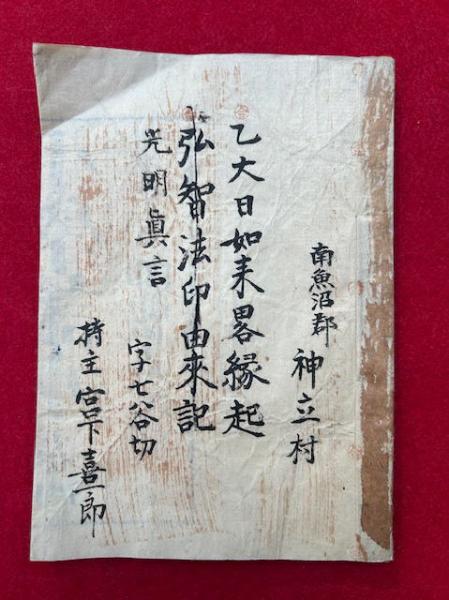 南魚沼郡 神立村
乙大日如来畧縁起
弘智法印由來記
光明眞言
字七谷切
持主 宮下喜一郎